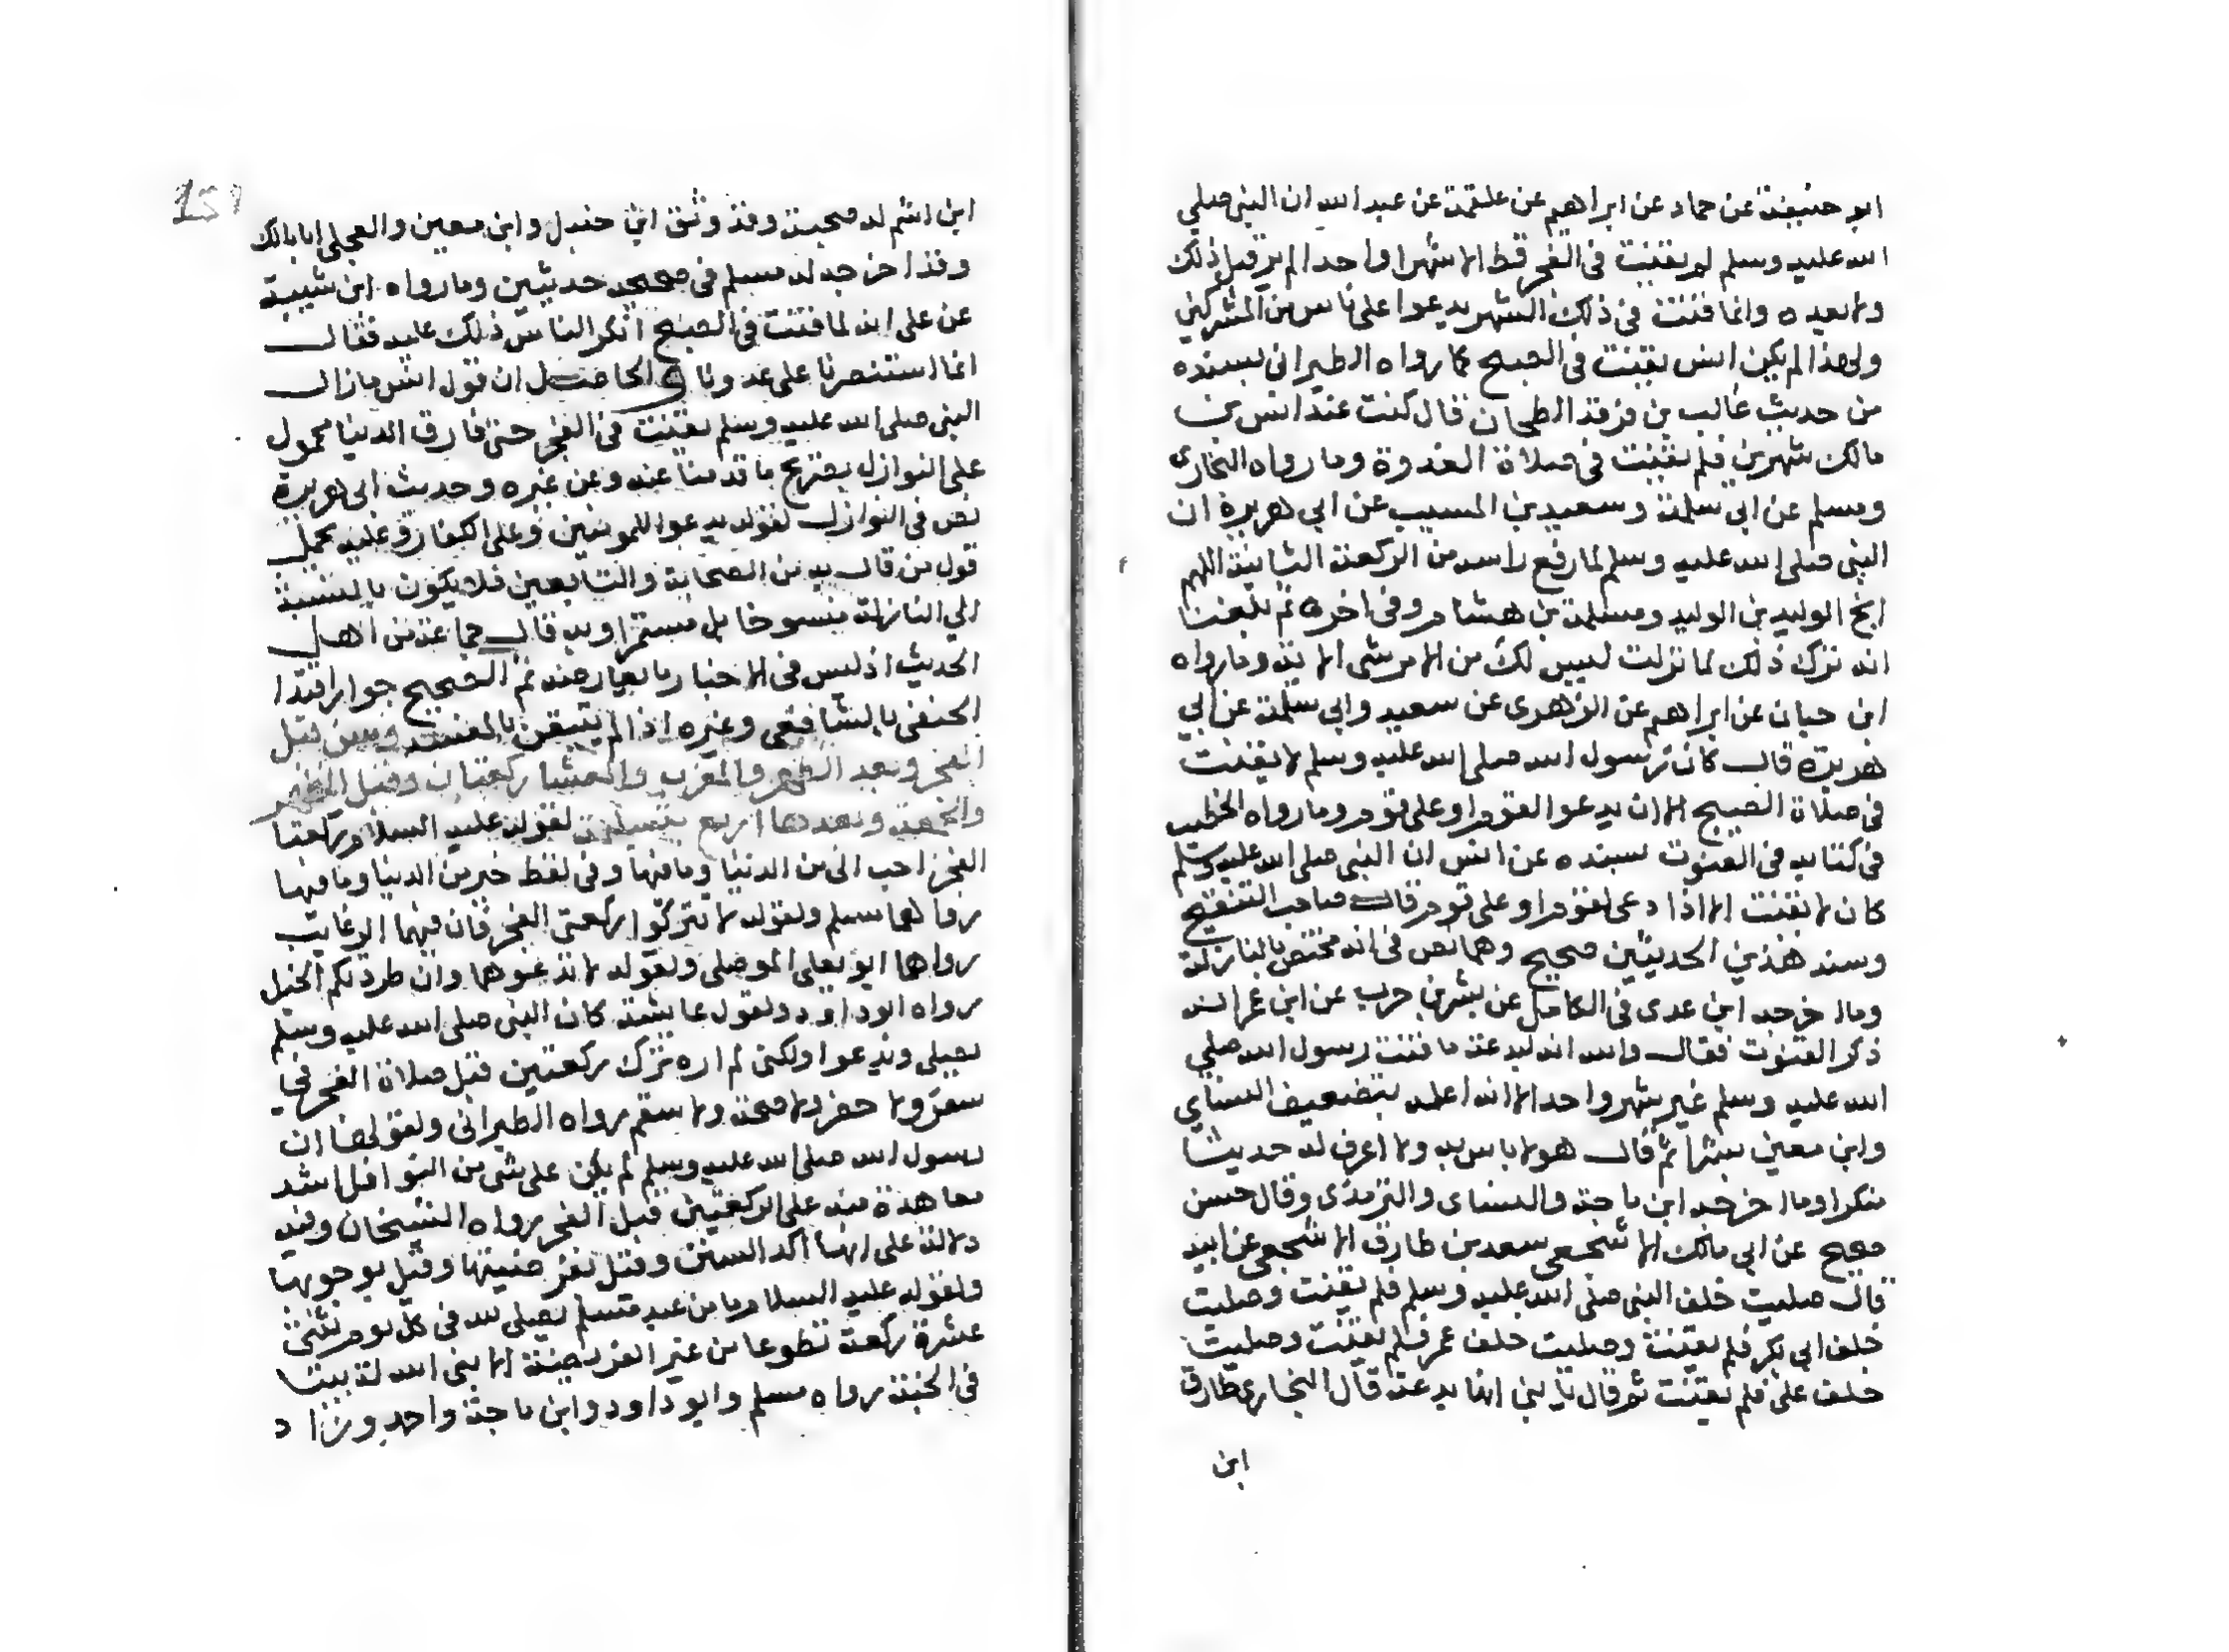 ابو حنيفة عن حماد عن ابراهيم عن علقمة عن عبد الله ان النبي صلي
الله عليه وسلم لم يقنت في الفجر قط الا شهرا واحدا لم ير قبل ذلك
ولا بعده وانما قنت في ذلك الشهر يدعوا على ناس من المشركين
ولهذا لم يكن انس يقنت في الصبح كما رواه الطبراني بسنده
من حديث غالب بن فرقد الطحان قال كنت عند انس بن
مالك شهرين فلم يقنت في صلاة الغدوة وما رواه البخاري
ومسلم عن ابي سلمة وسعيد بن المسيب عن ابي هريرة ان
النبي صلى الله عليه وسلم لما رفع راسه من الركعة الثانية اللهم
انج الوليد بن الوليد ومسلمة بن هشام وفي اخره ثم بلغنا
انه ترك ذلك لما نزلت ليس لك من الامر شي الاية وما رواه
ابن حبان عن ابراهيم عن الزهري عن سعيد وابي سلمة عن ابي
هريرة قال كان رسول الله صلى الله عليه وسلم لا يقنت
في صلاة الصبح الا ان يدعوا لقوم او على قوم وما رواه الخطيب
في كتابه في القنوت بسنده عن انس ان النبي صلى الله عليه وسلم
كان لا يقنت الا اذا دعى لقوم او على قوم قال صاحب التنقيح
وسند هذين الحديثين صحيح وهما نص في انه مختص بالنازلة
وما اخرجه ابن عدى في الكامل عن بشر بن حرب عن ابن عمر انه
ذكر القنوت فقال والله انه لبدعة ما قنت رسول الله صلي
الله عليه وسلم غير شهر واحد الا انه اعله بتضعيف النساي
وابن معين بشرا ثم قال هو لا باس به ولا اعرف له حديثا
منكرا وما اخرجه ابن ماجة والنساى والترمذى وقال حسن
صحيح عن ابي مالك الاشجعي سعد بن طارق الاشجعي عن ابيه
قال صليت خلف النبي صلى الله عليه وسلم فلم يقنت وصليت
خلف ابي بكر فلم يقنت وصليت خلف عمر فلم يقنت وصليت
خلف على فلم يقنت ثم قال يا بني انها بدعة قال البخاري طارق
ابن
ابن اشيم له صحبة وقد وثق ابن حنبل وابن معين والعجلي ابا مالك
وقد اخرج له مسلم في صحيحه حديثين وما رواه ابن شيبة
عن على انه لما قنت في الصبح انكر الناس ذلك عليه فقال
انما استنصرنا على عدونا والحاصل ان قول انس ما زال
النبي صلى الله عليه وسلم يقنت في الفجر حتى فارق الدنيا محمول
على النوازل بصريح ما قدمنا عنه وعن غيره وحديث ابي هريرة
نص في النوازل لقوله يدعوا للمومنين وعلى الكفار وعليه يحمل
قول من قال به من الصحابة والتابعين فلا يكون بالنسبة
الي النازلة منسوخا بل مستمرا وبه قال جماعة من اهل
الحديث اذ ليس في الاخبار ما يعارضه ثم الصحيح جواز اقتدا
الحنفي بالشافعي وغيره اذا لم يتيقن بالمفسد وسن قبل
الفجر وبعد الظهر والمغرب والعشا ركعتان وقبل الظهر
والجمعة وبعدها اربع بتسليمة لقوله عليه السلام ركعتا
الفجر احب الى من الدنيا وما فيها وفي لفظ خير من الدنيا وما فيها
رواهما مسلم ولقوله لا تتركوا ركعتي الفجر فان فيهما الرغايب
رواها ابو يعلى الموصلي ولقوله لا تدعوها وان طردتكم الخيل
رواه ابو داود ولقول عايشة كان النبي صلى الله عليه وسلم
يصلي ويدعوا ولكني لم اره ترك ركعتين قبل صلاة الفجر في
سفر ولا حضر ولا صحة ولا سقم رواه الطبراني ولقولها ان
رسول الله صلى الله عليه وسلم لم يكن على شي من النوافل اشد
معاهدة منه على الركعتين قبل الفجر رواه الشيخان وفيه
دلالة على انها اكد السنن وقيل بفرضيتها وقيل بوجوبها
ولقوله عليه السلام ما من عبد مسلم يصلي لله في كل يوم ثنتي
عشرة ركعة تطوعا من غير الفريضة الا بنى الله له بيتا
في الجنة رواه مسلم وابو داود وابن ماجة واحمد وزاد